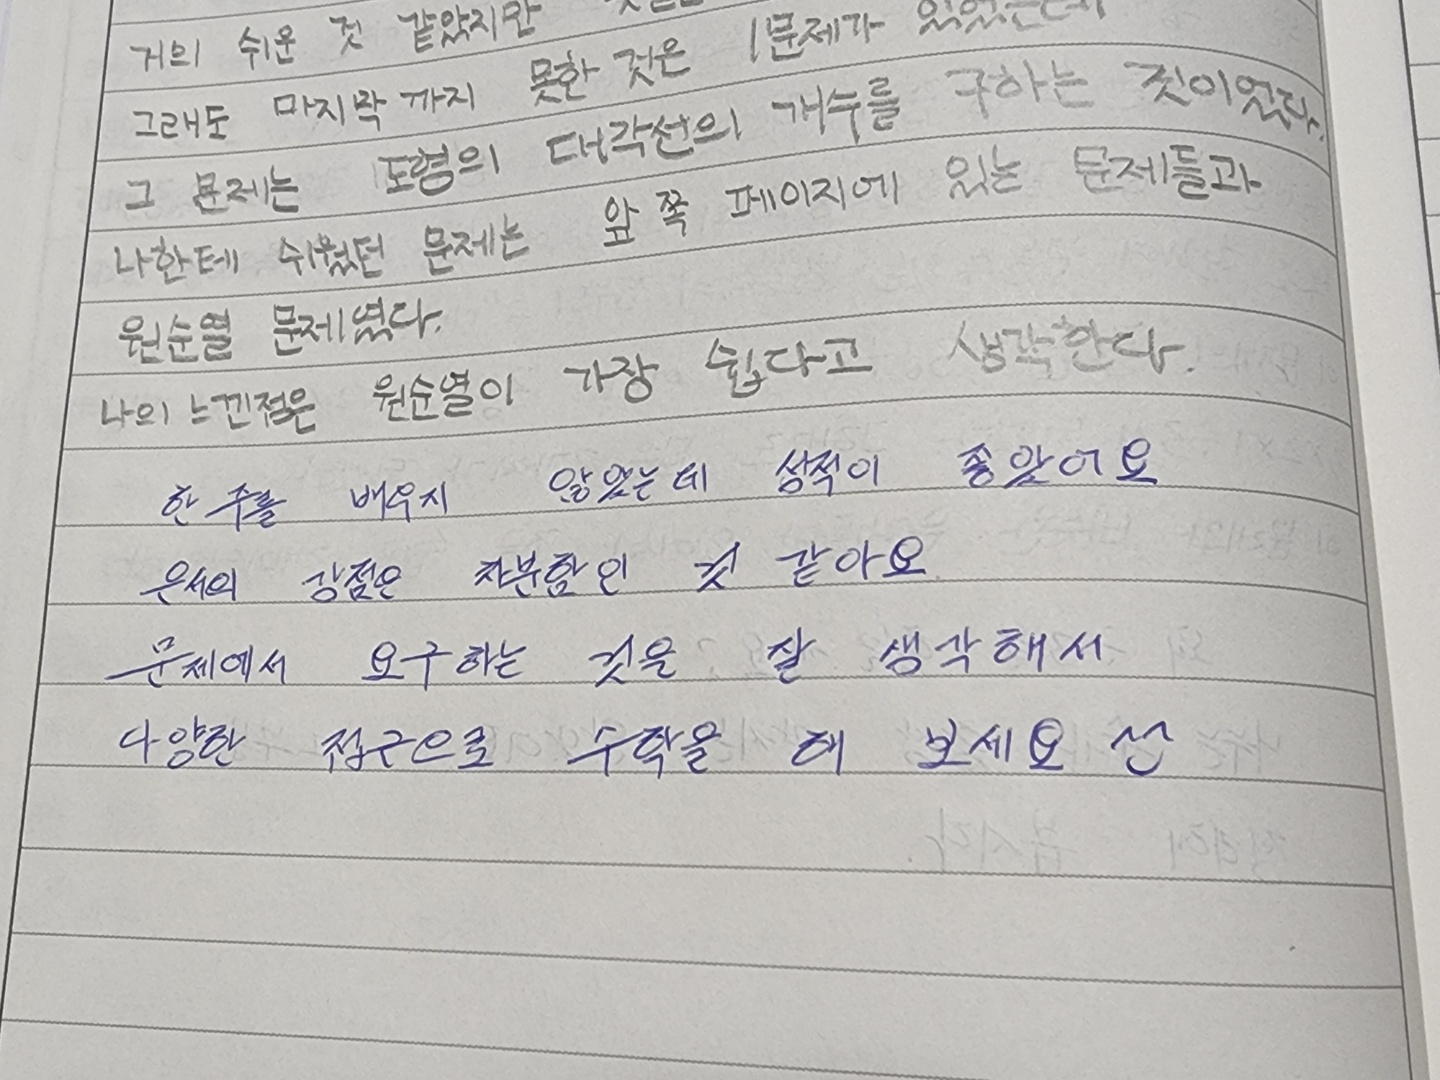 거의 쉬운 것 같았지만
그래도 마지막까지 못한 것은 1문제가 있었는데
그 문제는 도형의 대각선의 개수를 구하는 것이었다.
나한테 쉬웠던 문제는 앞쪽 페이지에 있는 문제들과
원순열 문제였다.
나의 느낀점은 원순열이 가장 쉽다고 생각한다.
한 주를 배우지 않았는데 성적이 좋았어요
은서의 강점은 차분함인 것 같아요
문제에서 요구하는 것을 잘 생각해서
다양한 접근으로 수학을 해 보세요